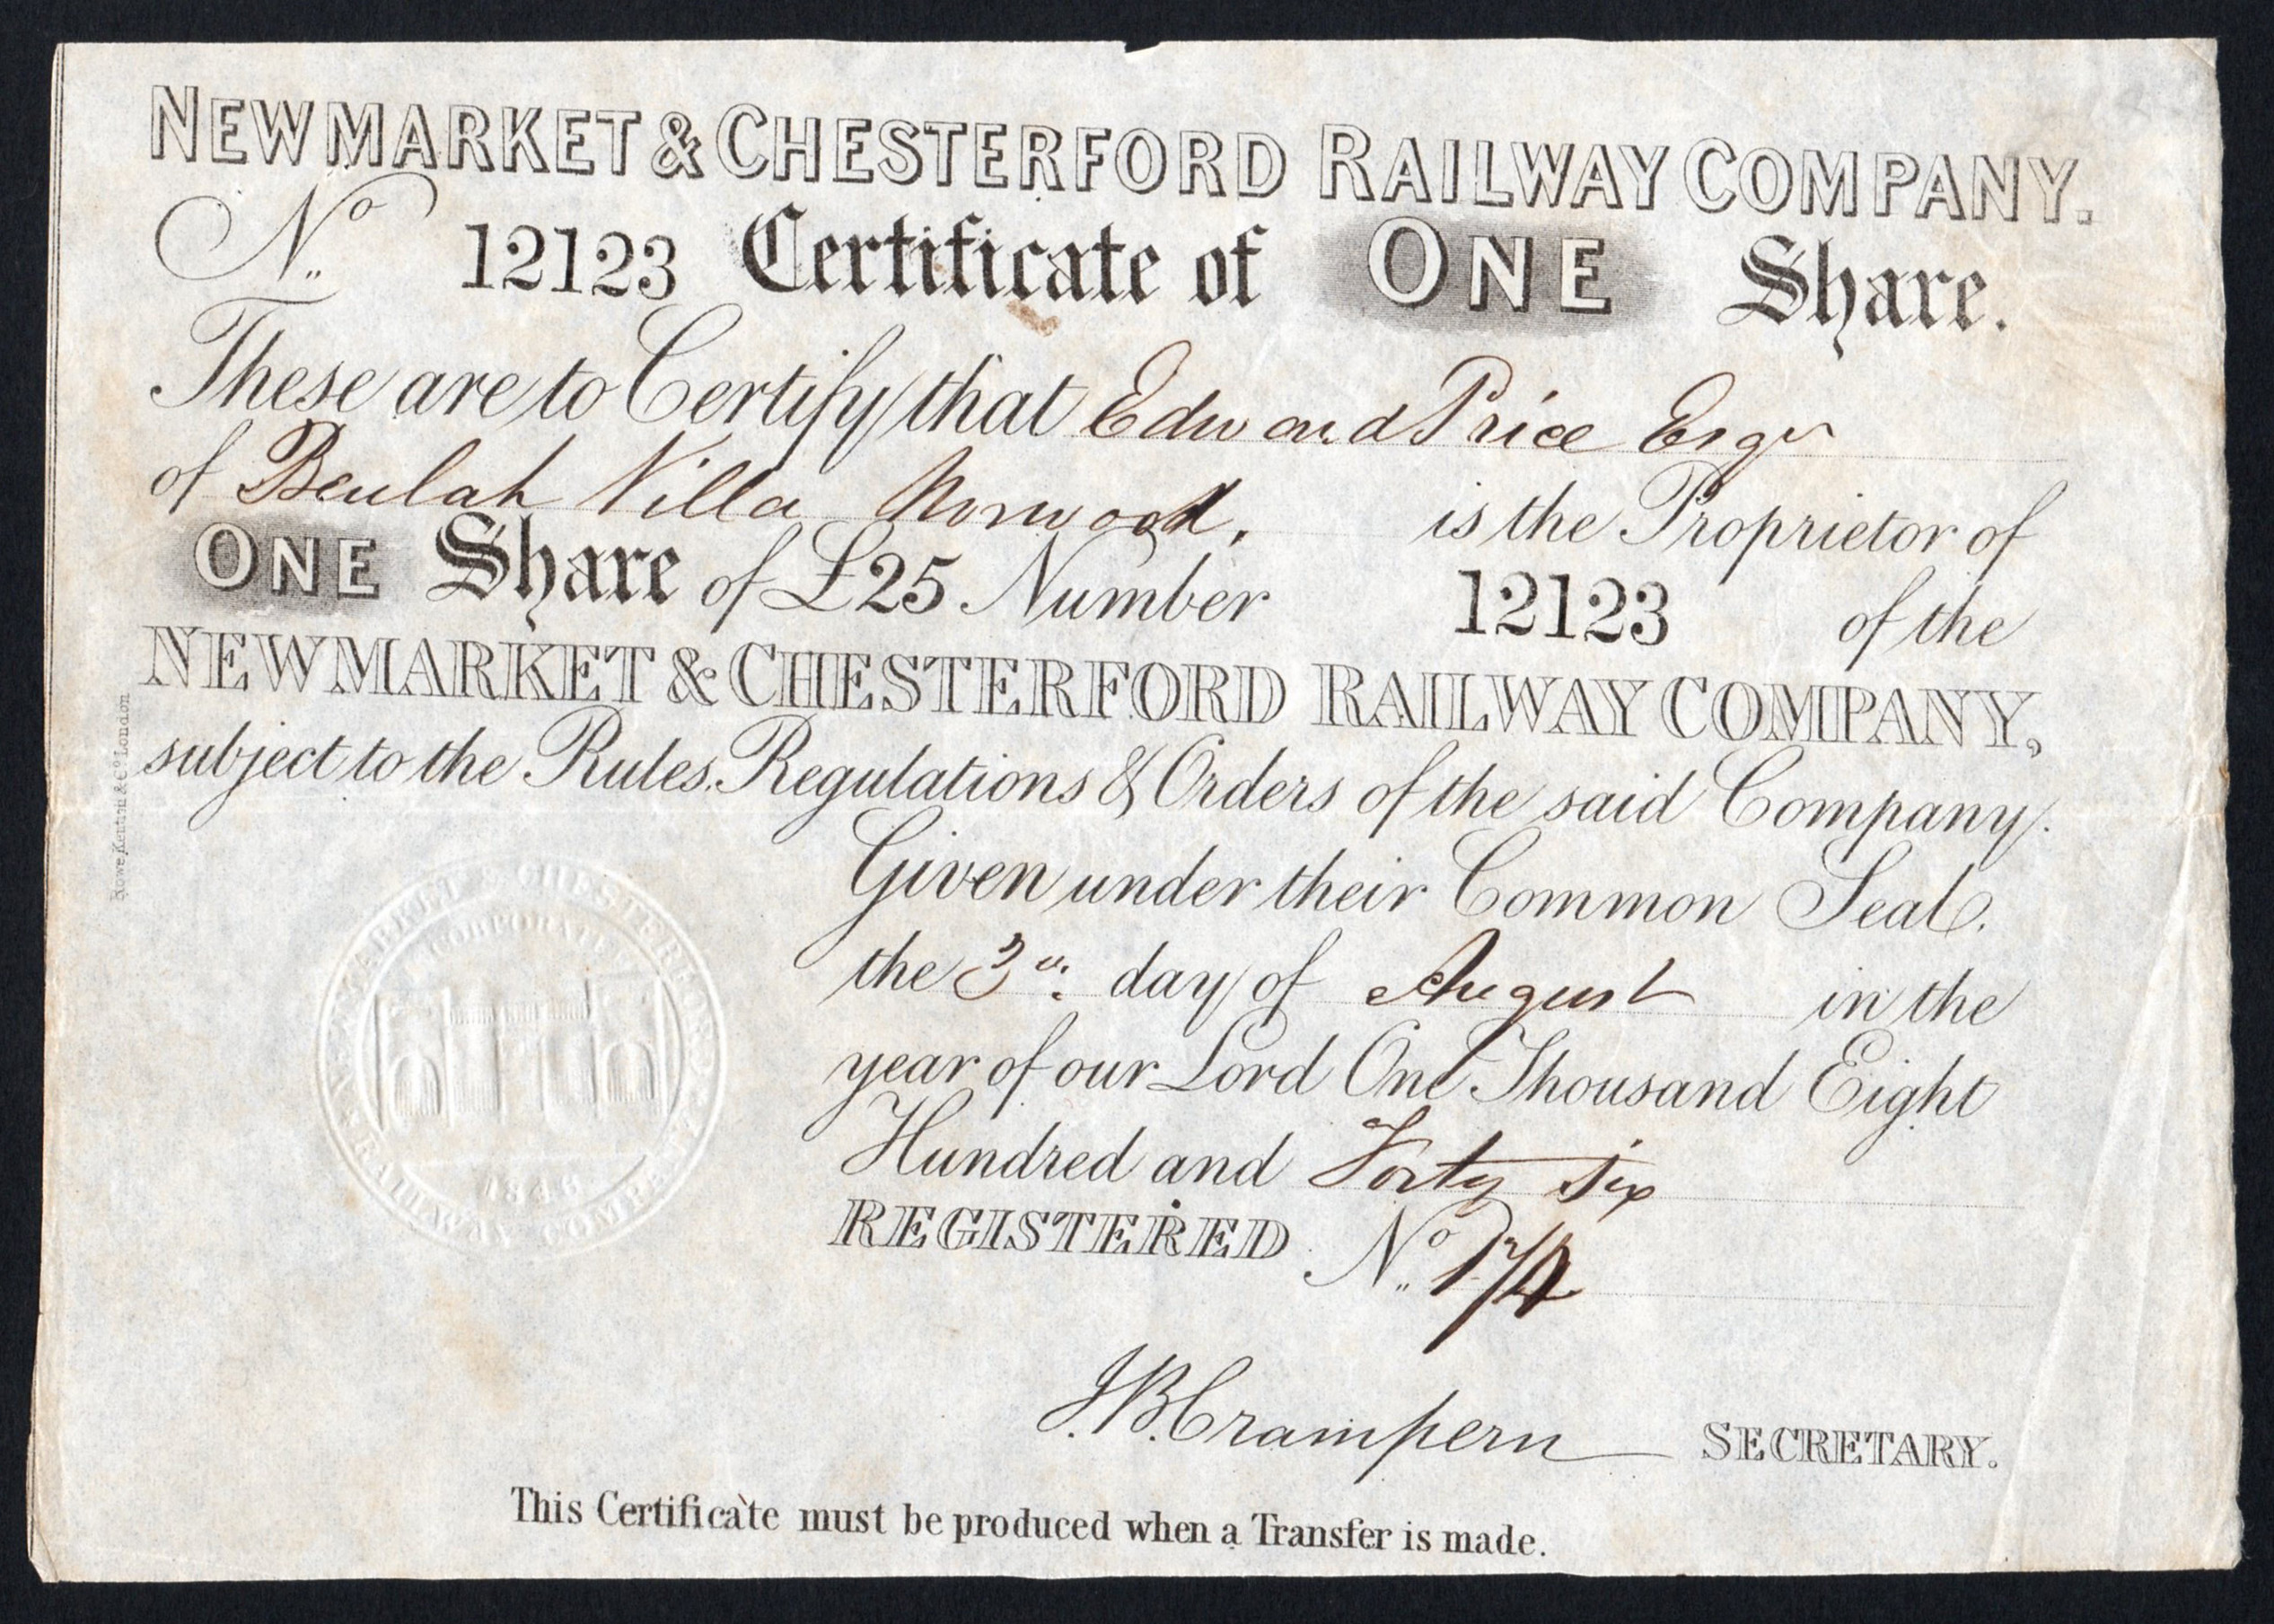 NEWMARKET & CHESTERFORD RAILWAY COMPANY.
No. 12123 Certificate of ONE Share.
These are to Certify that Edward Price Esqr
of Beulah Villa Norwood, is the Proprietor of
ONE Share of £25 Number 12123 of the
NEWMARKET & CHESTERFORD RAILWAY COMPANY,
subject to the Rules, Regulations & Orders of the said Company.
Given under their Common Seal,
the 3d. day of August in the
year of our Lord One Thousand Eight
Hundred and Forty six
REGISTERED No. 174
J.B. Crampern SECRETARY.
This Certificate must be produced when a Transfer is made.
Rowe Kentish & Co. London
NEWMARKET & CHESTERFORD RAILWAY COMPANY
INCORPORATED
1846